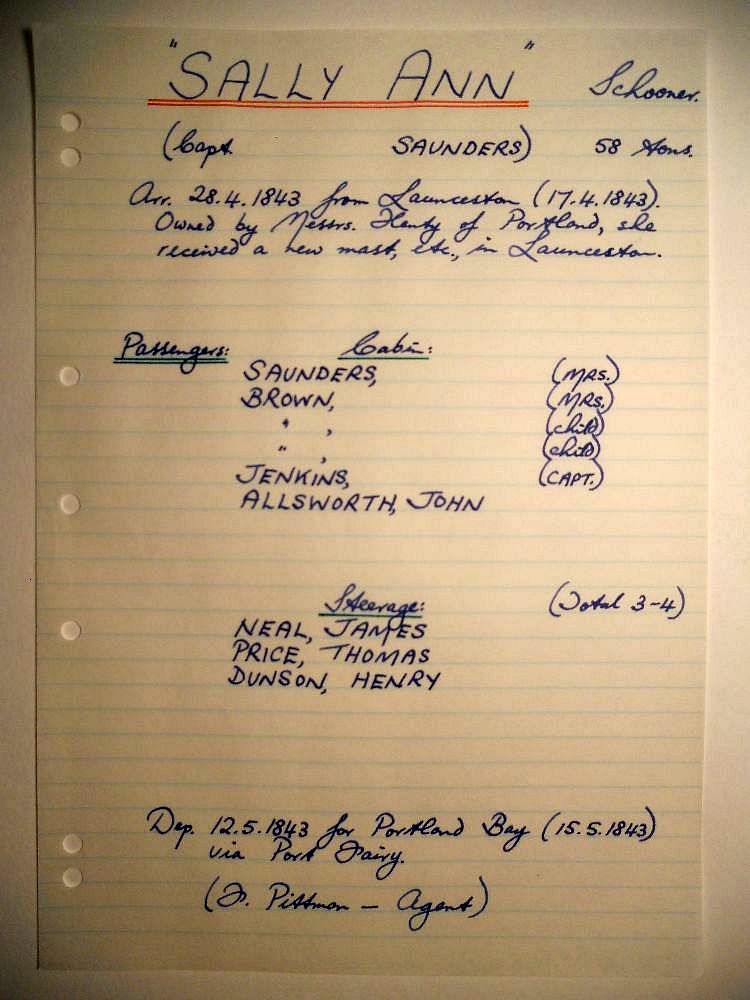 "SALLY ANN" Schooner.
(Capt. SAUNDERS) 58 tons.
Arr. 28.4.1843 from Launceston (17.4.1843).
Owned by Messrs. Henty of Portland, she
received a new mast, etc., in Launceston.
Passengers: Cabin:
SAUNDERS, (MRS.)
BROWN, (MRS.)
" , (child)
" , (child)
JENKINS, (CAPT.)
ALLSWORTH, JOHN
Steerage: (Total 3-4)
NEAL, JAMES
PRICE, THOMAS
DUNSON, HENRY
Dep. 12.5.1843 for Portland Bay (15.5.1843)
via Port Fairy.
(J. Pittman - Agent)